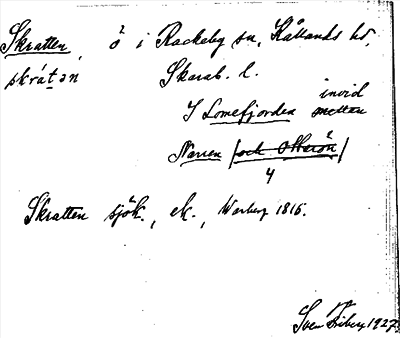 Skratten, ö i Rackeby sn, Kållands hd,
skrátən Skarab. l.
I Lomefjorden invid mellan
Narren (och Otterön)
4
Skratten sjök., ek., Warberg 1816.
Sven Friberg 1927